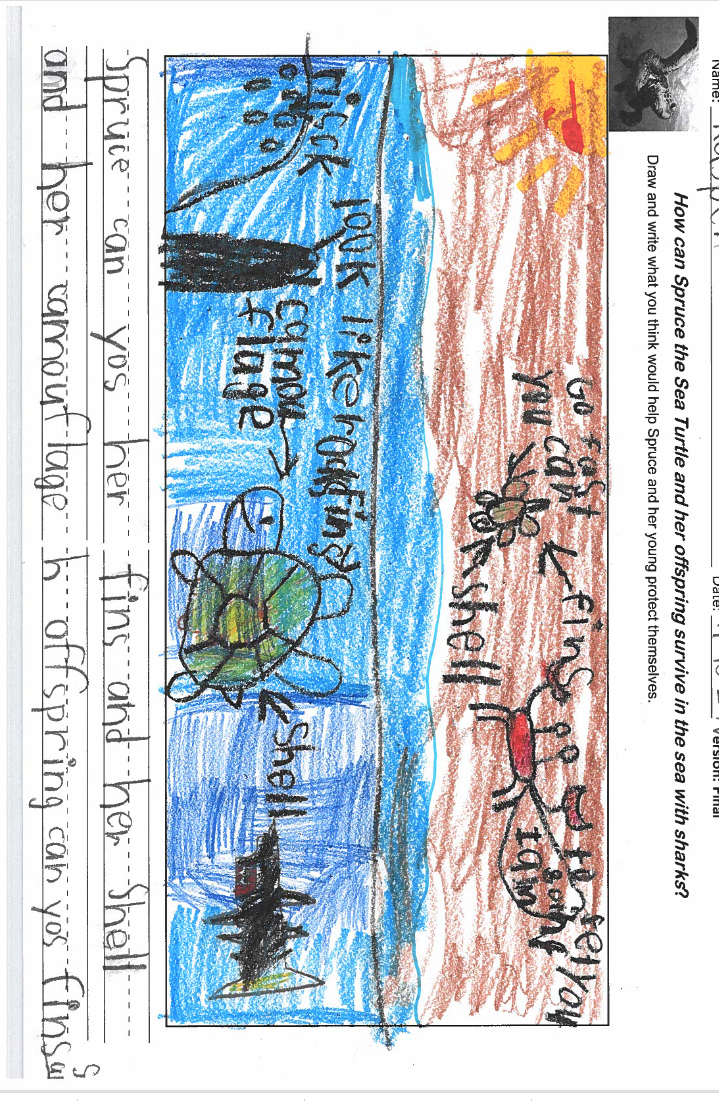 Name:
Date:
Version: Final
How can Spruce the Sea Turtle and her offspring survive in the sea with sharks?
Draw and write what you think would help Spruce and her young protect themselves.
Go fast
you can
fins
shell
I am
going
to get you
look like
camou
flage
shell
Spruce can yos her fins and her shell
and her camouflage h offspring can yos fins